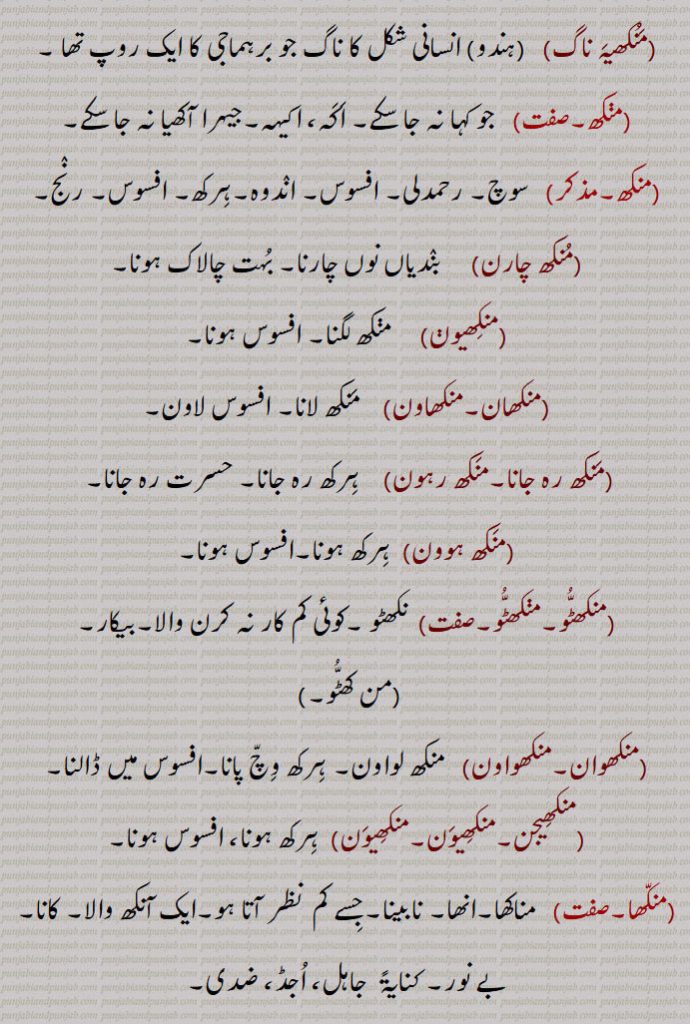 (مَنُکھیَہ ناگ) (ہندو) انسانی شکل کا ناگ جو برہماجی کا ایک روپ تھا ۔
(منکھ۔صفت) جو کہا نہ جاسکے۔ اکَہ، اکیہہ۔جیہرا آکھیا نہ جاسکے۔
(منکھ۔مذکر) سوچ۔ رحمدلی۔ افسوس۔ انْدوہ۔ہِرکھ۔ افسوس۔ رنْج۔
(مُنکھ چارن) بنْدیاں نوں چارنا۔ بُہت چالاک ہونا۔
(منکِھیون) منکھ لگنا۔ افسوس ہونا۔
(منکھان۔منکھاون) مَنکھ لانا۔ افسوس لاون۔
(مَنکھ رہ جانا۔منَکھ رہون) ہِرکھ رہ جانا۔ حسرت رہ جانا۔
(منَکھ ہوون) ہِرکھ ہونا۔افسوس ہونا۔
(منکھٹُّو۔منْکھٹُّو۔صفت) نکھٹو ۔کوئی کم کار نہ کرن والا۔بیکار۔
(من کھٹُّو۔)
(منکھوان۔منکھواون) منکھ لواون۔ ہِرکھ وِچّ پانا۔افسوس میں ڈالنا۔
(منکھِیجن۔منکھِیوَن۔منکھِیوَن) ہِرکھ ہونا، افسوس ہونا۔
(منَکّھا۔صفت) مناکھا۔انھا۔ نابینا۔جِسے کم نظر آتا ہو۔ایک آنکھ والا۔ کانا۔
بے نور۔ کنایۃً جاہل، اُجڈ، ضدی۔